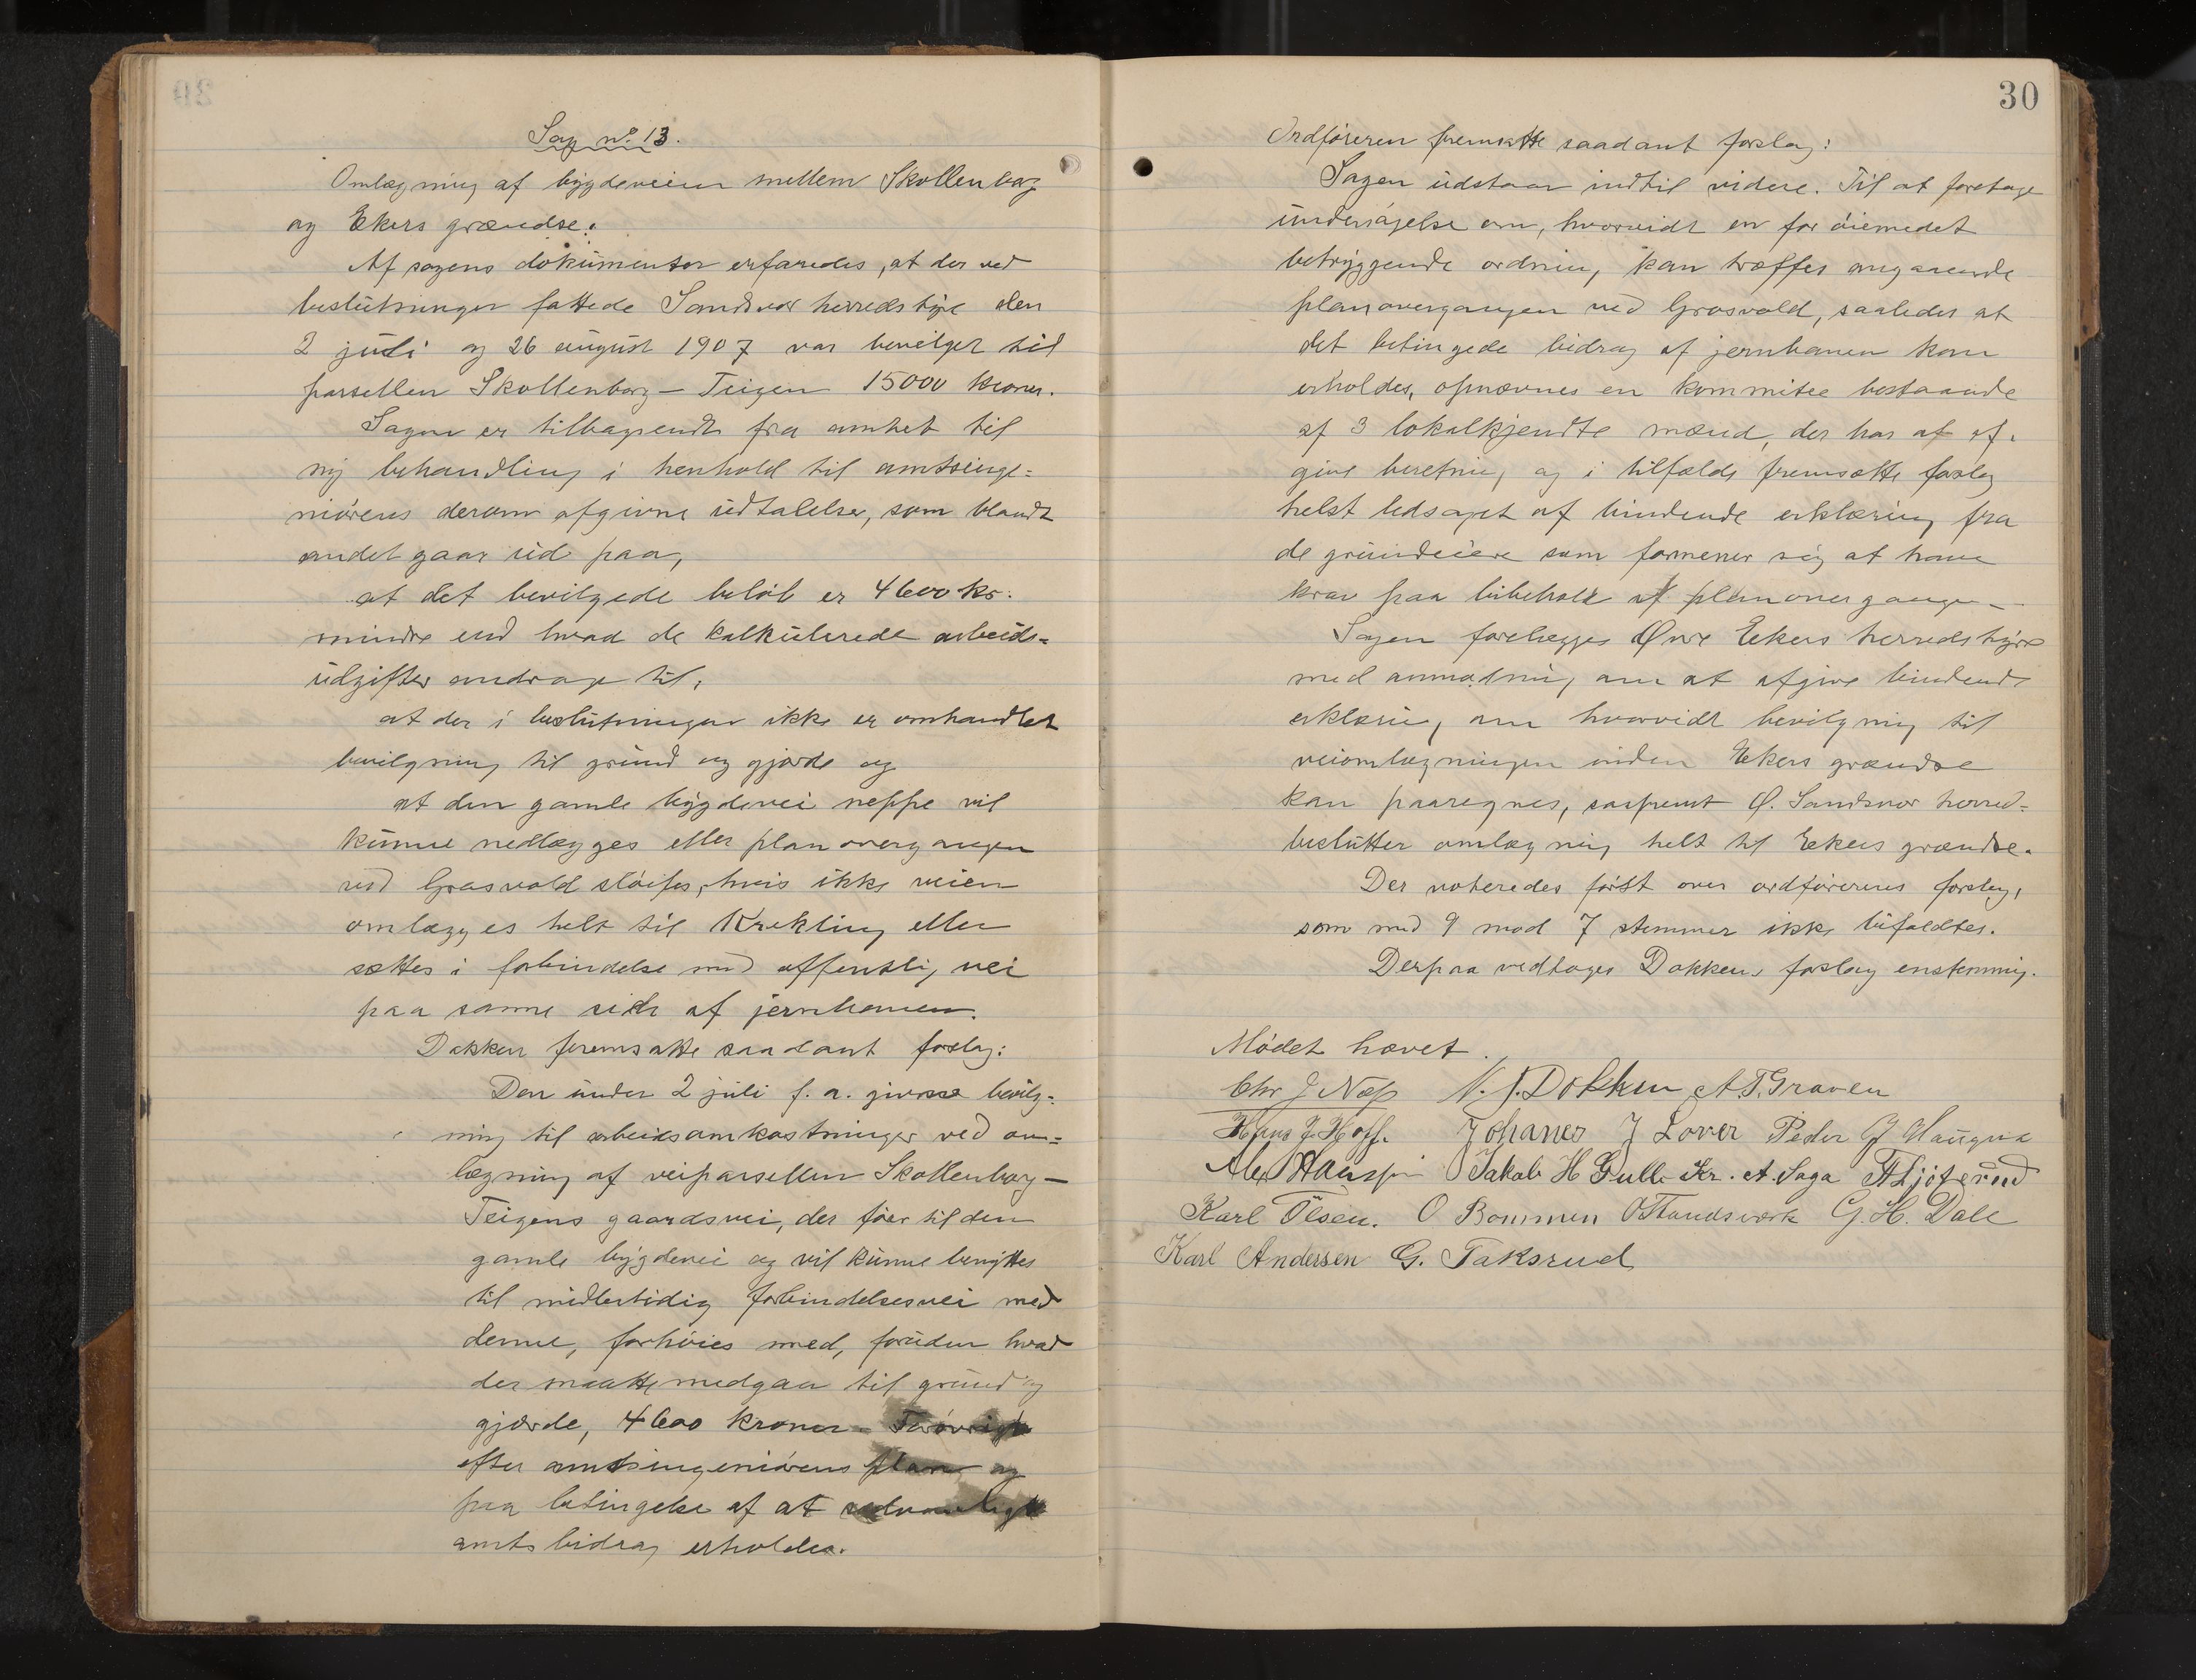 Sag no. 13.
Omlægning af bygdeveien mellem Skollenborg
og Ekers grændse.
Af sagens dokumenter erfaredes, at der ved
beslutninger fattede Sandsvær herredstyre den
2 juli og 26 august 1907 var bevilget til
parsellen Skollenborg – Teigen 15000 kroner.
Sagen er tilbagesendt fra amtet til
ny behandling i henhold til amtsinge=
niørens derom afgivne udtalelse, som blandt
andet gaar ud paa,
at det bevilgede beløb er 4600 kr.
mindre end hvad de kalkulerede arbeids=
udgifter andrage til,
at der i beslutningen ikke er omhandlet
bevilgning til grund og gjærde og
at den gamle bygdevei neppe vil
kunne nedlægges eller planovergangen
ved Grosvold sløifes, hvis ikke veien
omlægges helt til Krekling eller
sættes i forbindelse med offentlig vei
paa samme side af jernbanen.
Dokken fremsatte saadant forslag:
Den under 2 juli f. a. givne bevilg=
ning til arbeidsomkostninger ved om=
lægning af veiparsellen Skollenborg –
Teigens gaardsvei, der fører til den
gamle bygdevei og vil kunne benyttes
til midlertidig forbindelsesvei med
denne, forhøies med, foruden hvad
der maatte medgaa til grund og
gjærde, 4600 kroner – Forøvrigt
efter amtsingeniørens plan og
paa betingelse af at sedvanligt
amtsbidrag erholdes.
30
Ordføreren fremsatte saadant forslag:
Sagen udstaar indtil videre. Til at foretage
undersøgelse om, hvorvidt en for øiemedet
betryggende ordning kan træffes angaaende
planovergangen ved Grosvold, saaledes at
det betingede bidrag af jernbanen kan
erholdes, opnævnes en kommitee bestaaende
af 3 lokalkjendte mænd, der har at af=
give beretning og i tilfælde fremsætte forslag
helst ledsaget af bindende erklæring fra
de grundeiere som formener sig at have
krav paa bibehold af planovergangen –
Sagen forelægges Øvre Ekers herredstyre
med anmodning om at afgive bindende
erklæring om hvorvidt bevilgning til
veiomlægningen inden Ekers grændse
kan paaregnes, saafremt Ø. Sandsvær herred=
beslutter omlægning helt til Ekers grændse.
Der voteredes først over ordførerens forslag,
som med 9 mod 7 stemmer ikke bifaldtes.
Derpaa vedtoges Dokkens forslag enstemmig.
Mødet hævet.
Chr J Næp N. J. Dokken A. T. Graven
Hans J. Hoff. Johanes J Lover Peder J Haugna
Alex Hansen Jakob H Gulli Kr. A. Saga A Ljøterud
Karl Olsen. O Bommen O Strandsværk G. H. Dale
Karl Andersen G. Taksrud